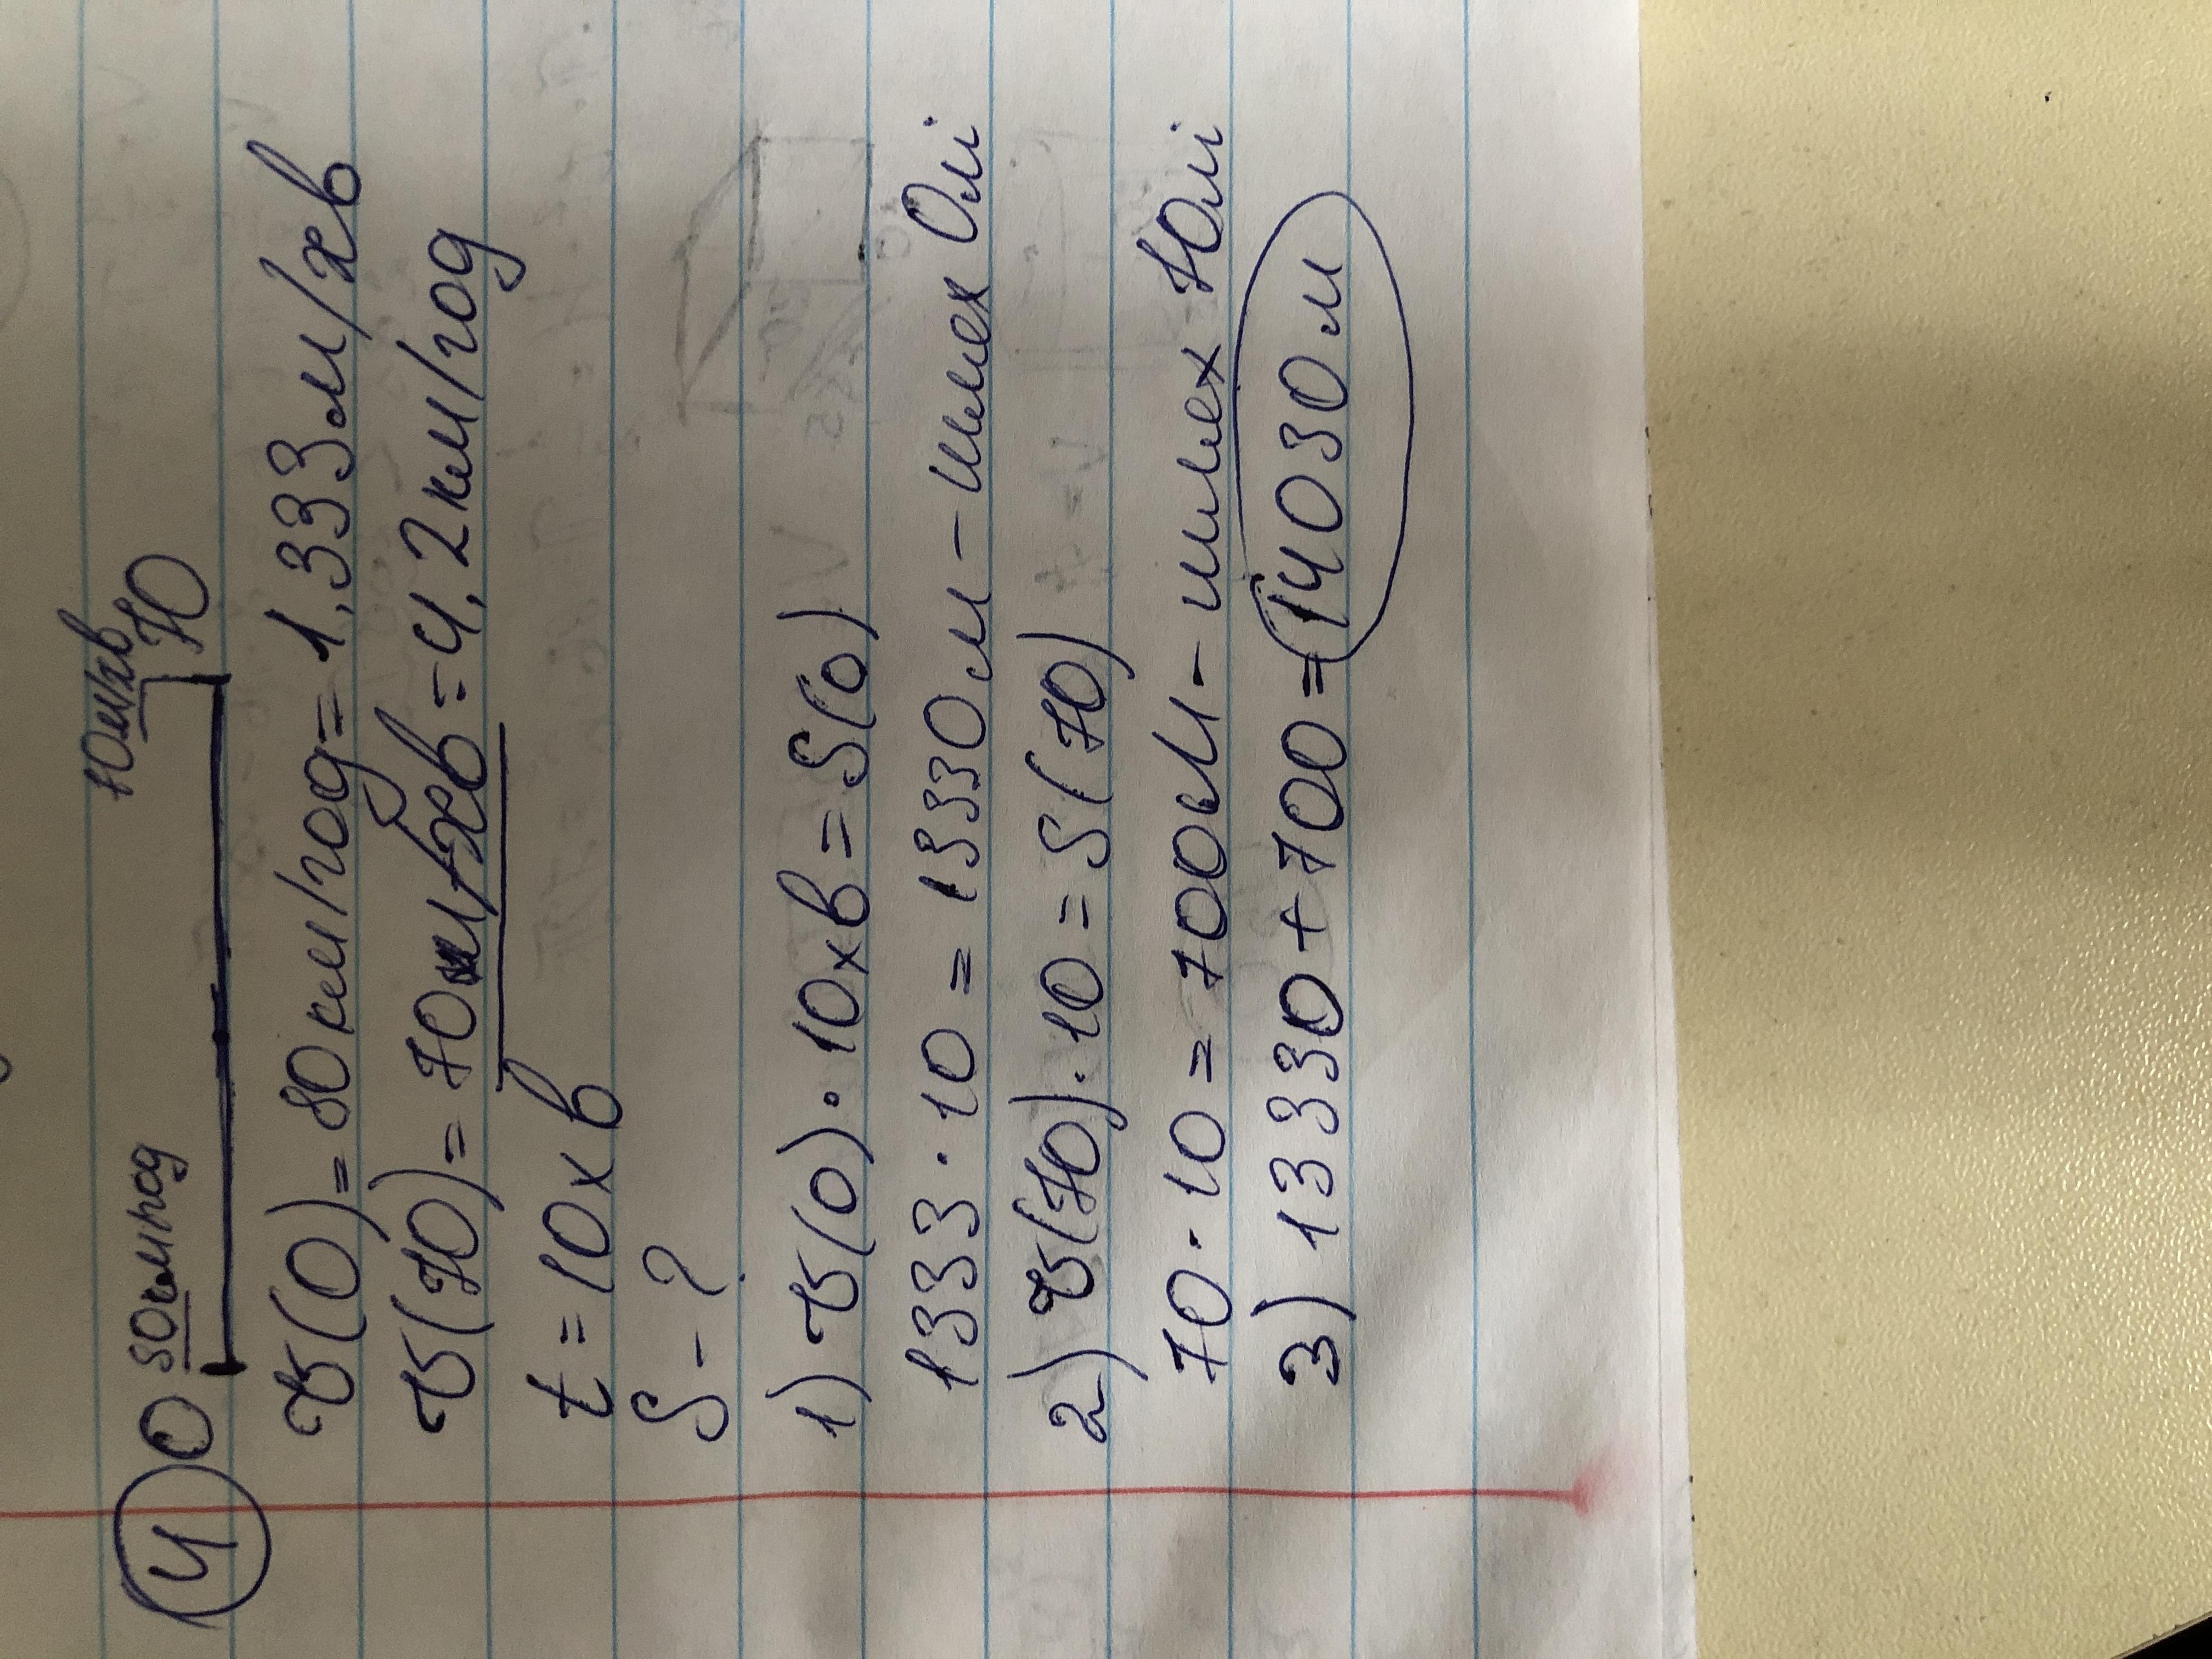 4 О 80км/год 70м/хв Ю
v(О)=80км/год=1.333м/хв
v(Ю)=70м/хв=4,2км/год
t=10хв
S-?
1) v(О)·10хв=S(О)
1333·10=13330м-шлях Олі
2) v(Ю)·10=S(Ю)
70·10=700м-шлях Юлі
3) 13330+700=14030м